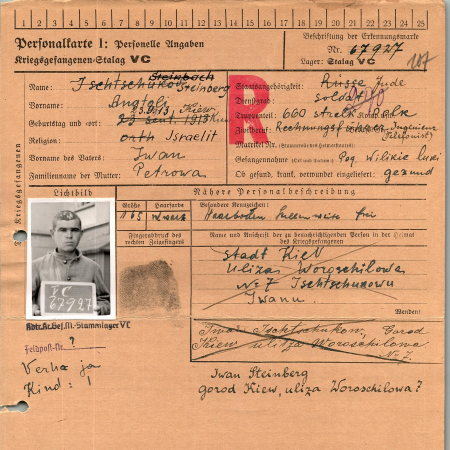 1 2 3 4 5 6 7 8 9 10 11 12 13 14 15 16 17 18 19 20 21 22 23 24 25
Personalkarte I: Personelle Angaben
Kriegsgefangenen-Stalag VC
Beschriftung der Erkennungsmarke
Nr. 67927
Lager: Stalag VC
107
Kriegsgefangenen
Steinbach
Name: Ischtschukow Steinberg
Vorname: Anatoli
Geburtstag und -ort: 23.9.1913, Kiew
23 sept. 1913 Kiew
Religion: orth Israelit
Vorname des Vaters: Iwan
Familienname der Mutter: Petrowa
R
Staatsangehörigkeit: Russe Jude
Dienstgrad: Soldat
Truppenteil: 660 Polk
Zivilberuf: Rechnungsführer Ingenieur
Matrikel Nr.
Gefangennahme (Ort und Datum): Wilikie Luki
Ob gesund, krank, verwundet eingeliefert: gesund
Lichtbild
Nähere Personalbeschreibung
Größe
Haarfarbe
Besondere Kennzeichen:
165 schwarz
Fingerabdruck des rechten Zeigefingers
Name und Anschrift der zu benachrichtigenden Person in der Heimat des Kriegsgefangenen
Stadt Kiew
Uliza Woroschilowa
No 7 Ischtschukowu
Iwanu.
VC
67927
Wenden!
M-Stammlager VC
Feldpost-Nr. ?
Verh. ja
Kind: 1
Iwan Ischtschukow, Gorod
Kiew uliza Woroschilowa
No 7.
Iwan Steinberg
gorod Kiew, uliza Woroschilowa 7